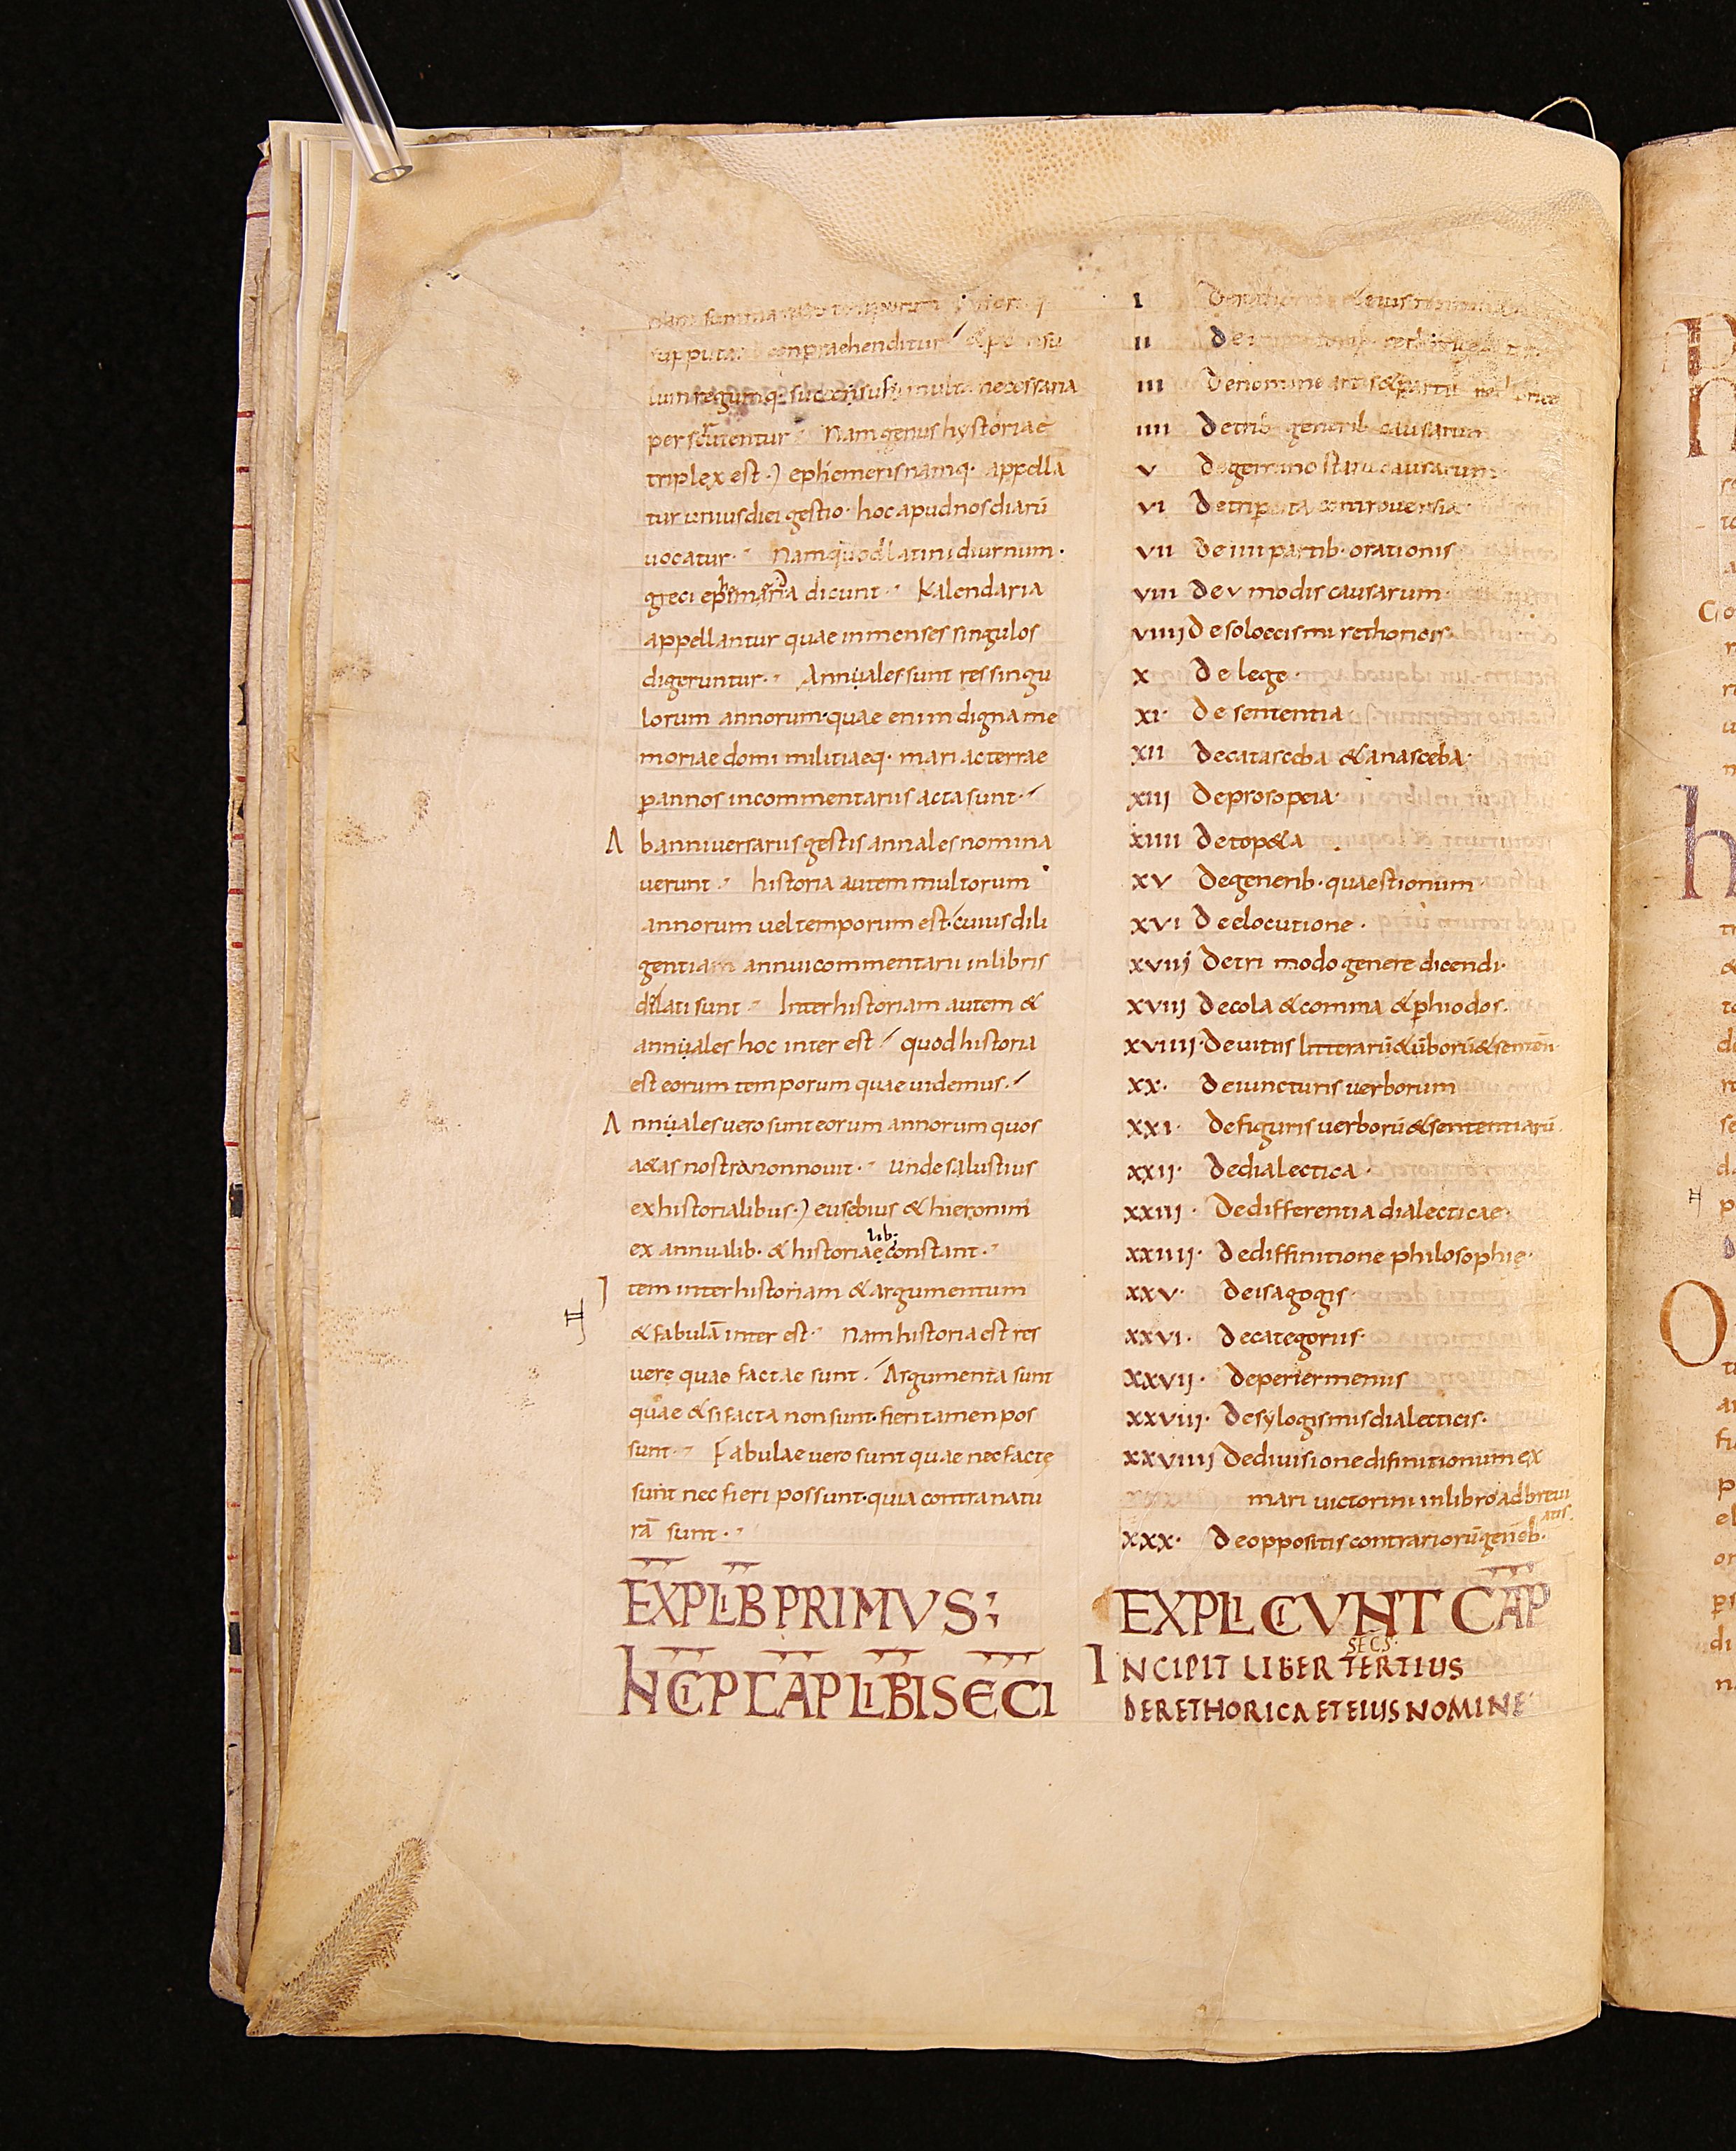 nam summa retro temporum
supputatio conpraehenditur & per consu
lum regumq· successus multa necessaria
perscrutentur Nam genus hystoriae
triplex est·) ephemeris namq· appella
tur unius diei gestio· hoc apud nos diariū
uocatur· Nam quod latini diurnum·
greci ephimerida dicunt Kalendaria
appellantur quae in menses singulos
digeruntur· Annuales sunt res singu
lorum annorum· quae enim digna me
moriae domi militiaeq· mari ac terrae
p annos in commentariis acta sunt·
Ab anniuersariis gestis annales nomina
uerunt historia autem multorum
annorum uel temporum est· cuius dili
gentiam annui commentarii in libris
delati sunt Inter historiam autem &
annuales hoc inter est quod historia
est eorum temporum quae uidemus·
Annuales uero sunt eorum annorum quos
a&as nostra non nouit· unde salustius
ex historialibus·) eusebius & hieronimī
ex annualib· & historiae constant·
lib·
Item inter historiam & argumentum
& fabulā inter est Nam historia est res
uerę quae factae sunt· Argumenta sunt
quae &si facta non sunt· fieri tamen pos
sunt· Fabulae uero sunt quae nec factę
sunt nec fieri possunt· quia contra natu
rā sunt·
EXPLIB PRIMVS;
INCIP CAP LIBI SECI
I De & eius nomine
II De
III De nomine artis & partū rethorice
IIII De trib· generib· causarum
V De gemino statu causarum·
VI De tripertita controuersia·
VII De IIII partib· orationis
VIII De V modis causarum·
VIIII De soloecismi rethoricis
X De lege·
XI· De sententia
XII De catasceba & anasceba·
XIII De prosopeia·
XIIII De etop&a
XV De generib· quaestionum
XVI De elocutione·
XVIJ De trimodo genere dicendi·
XVIII De cola & comma & phiodos·
XVIIII· De uitiis litterarū & ūborū & sententiī
XX· De iuncturis uerborum
XXI· De figuris uerborū & sententiarū·
XXII· De dialectica·
XXIII· De differentia dialecticae·
XXIIII· De diffinitione philosophię·
XXV· De isagogis·
XXVI· De categoriis·
XXVII· De periermeniis
XXVIII· De sylogismis dialecticis·
XXVIIII De diuisione difinitionum ex
mari uictorini in libro adbreui
atis·
XXX· De oppositis contrariorū generib·
EXPLICIVNT CAP
SECS·
INCIPIT LIBER TERTIUS
DE RETHORICA ET EIUS NOMINE·